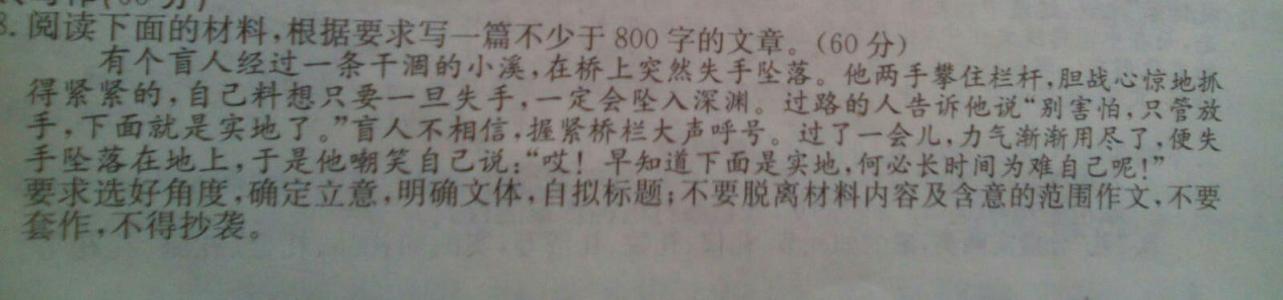 写作(60分)
8.阅读下面的材料,根据要求写一篇不少于800字的文章。(60分)
有个盲人经过一条干涸的小溪,在桥上突然失手坠落。他两手攀住栏杆,胆战心惊地抓
得紧紧的,自己料想只要一旦失手,一定会坠入深渊。过路的人告诉他说“别害怕,只管放
手,下面就是实地了。”盲人不相信,握紧桥栏大声呼号。过了一会儿,力气渐渐用尽了,便失
手坠落在地上,于是他嘲笑自己说:“哎!早知道下面是实地,何必长时间为难自己呢!”
要求选好角度,确定立意,明确文体,自拟标题;不要脱离材料内容及含意的范围作文,不要
套作,不得抄袭。